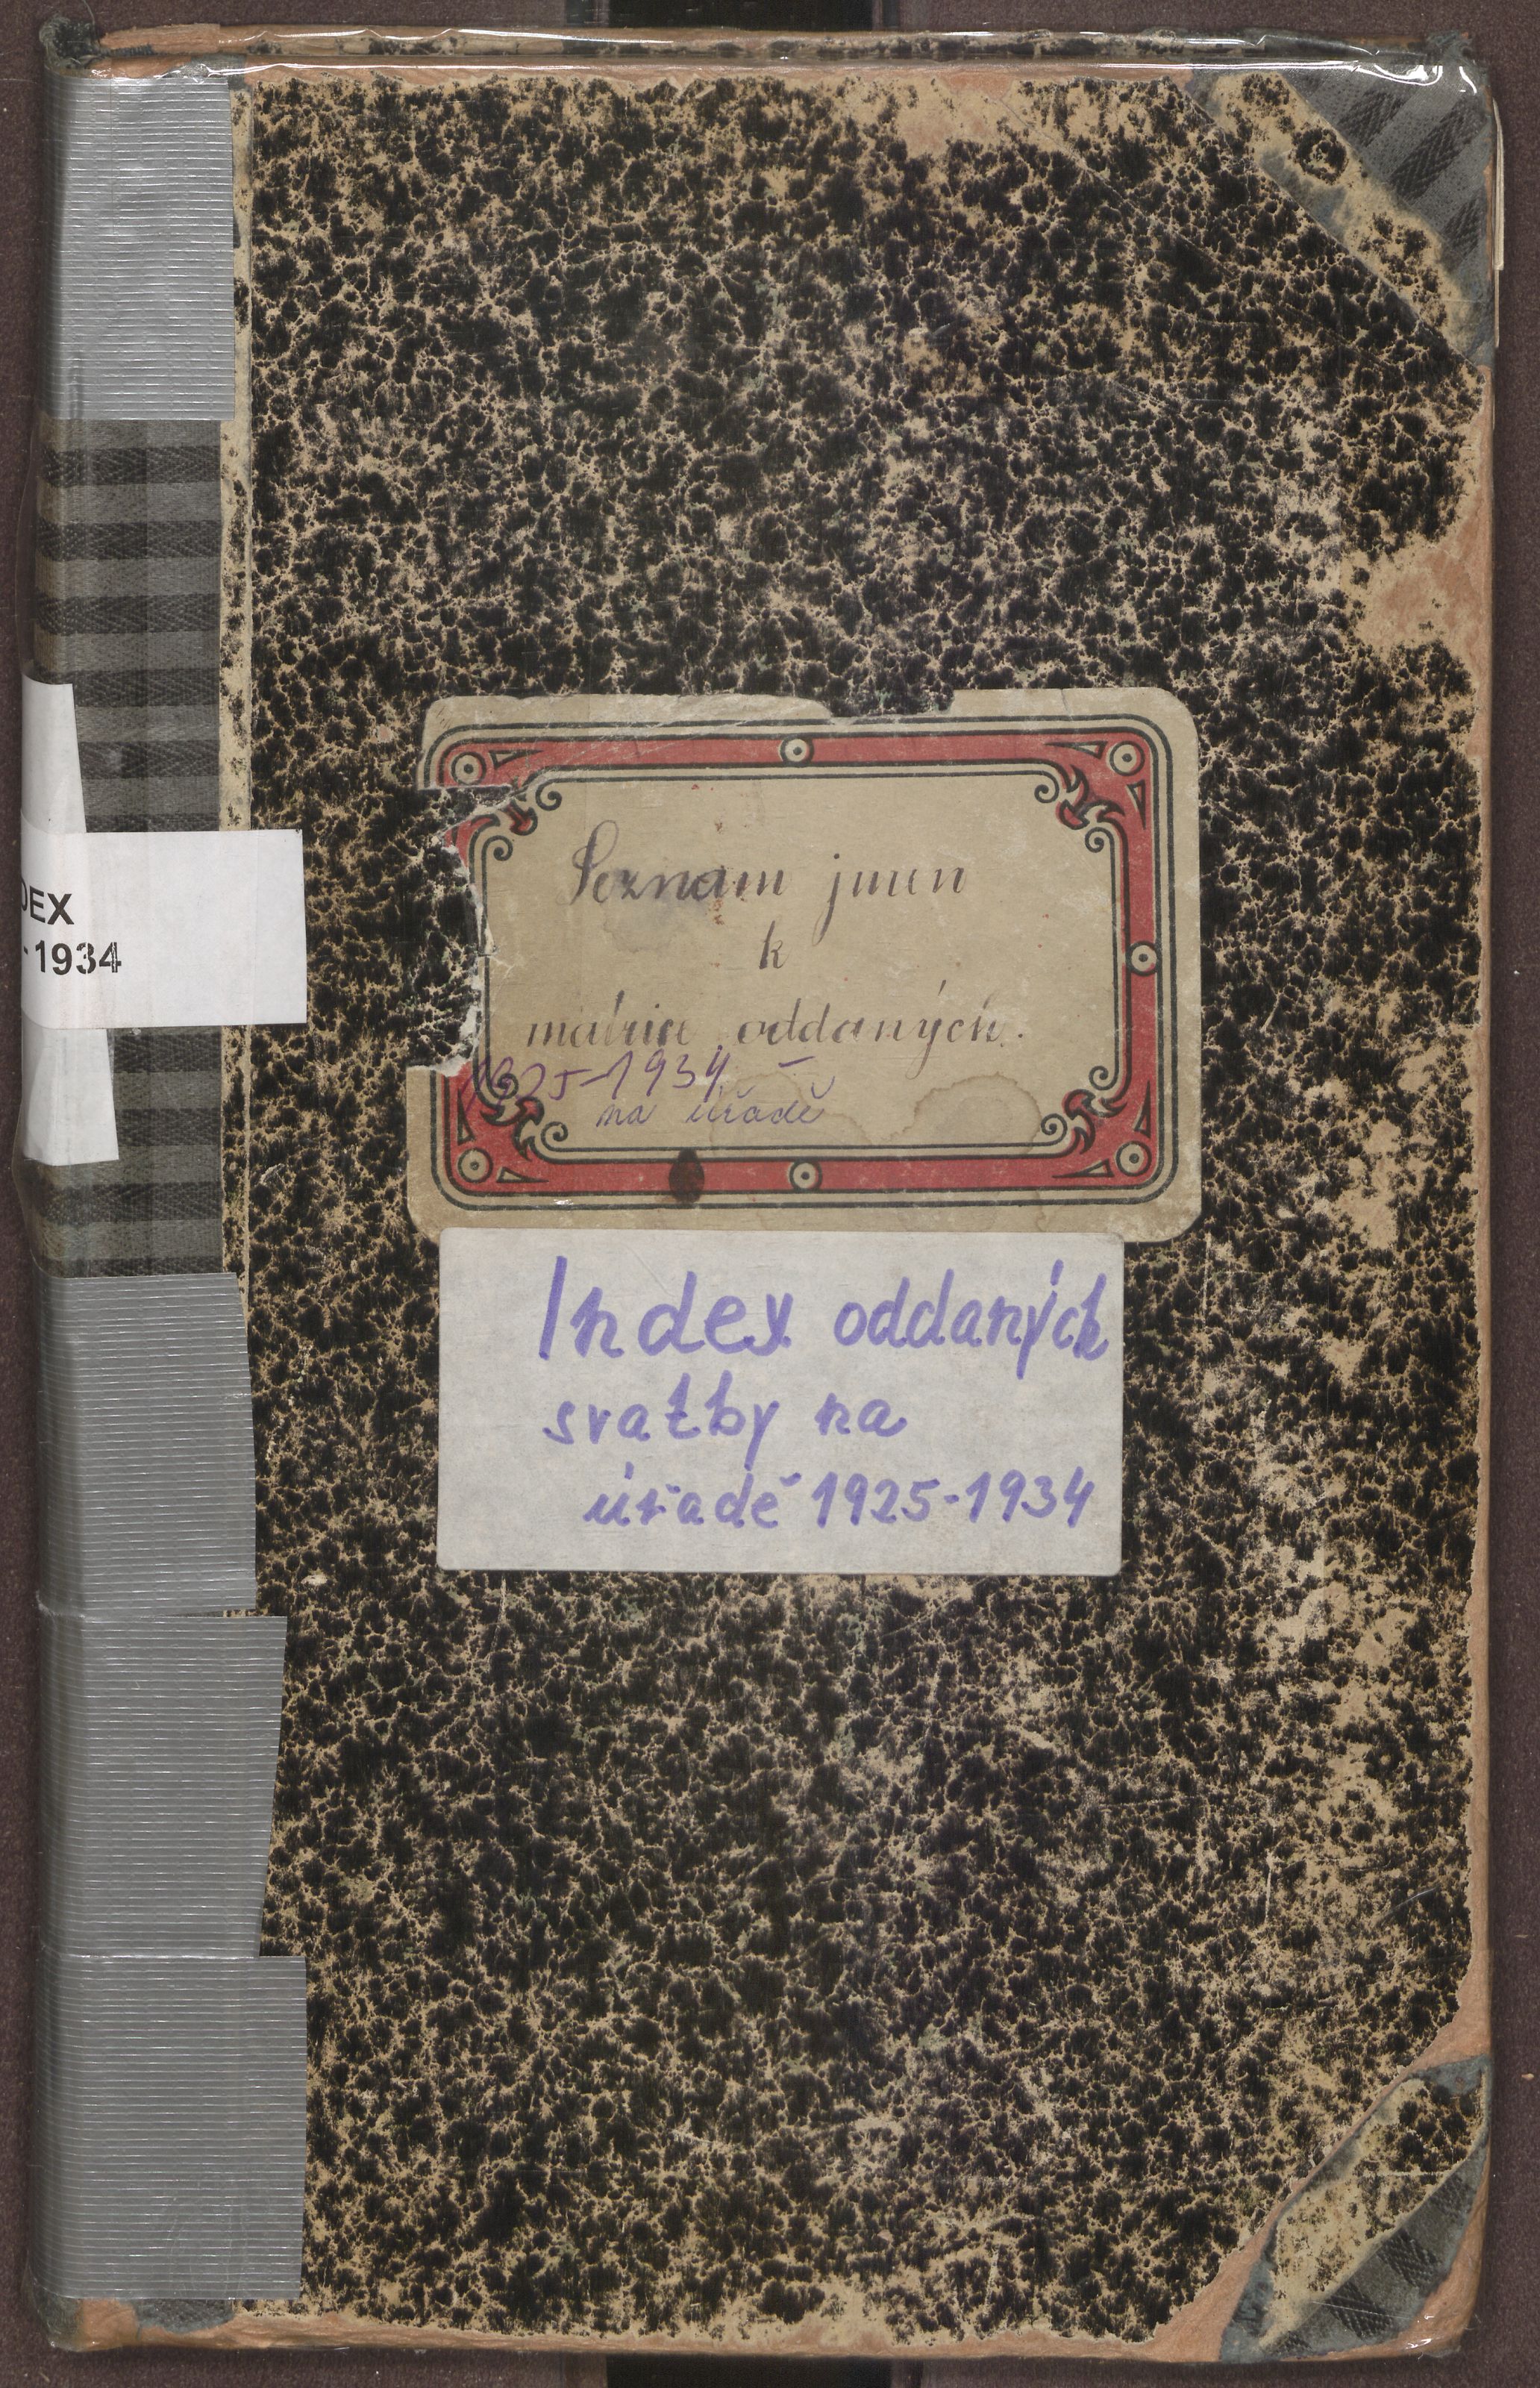 Seznam jmen
k
matrice oddaných.
1925-1934
na úřadě
Index oddaných
svatby na
úřadě 1925-1934
DEX
-1934